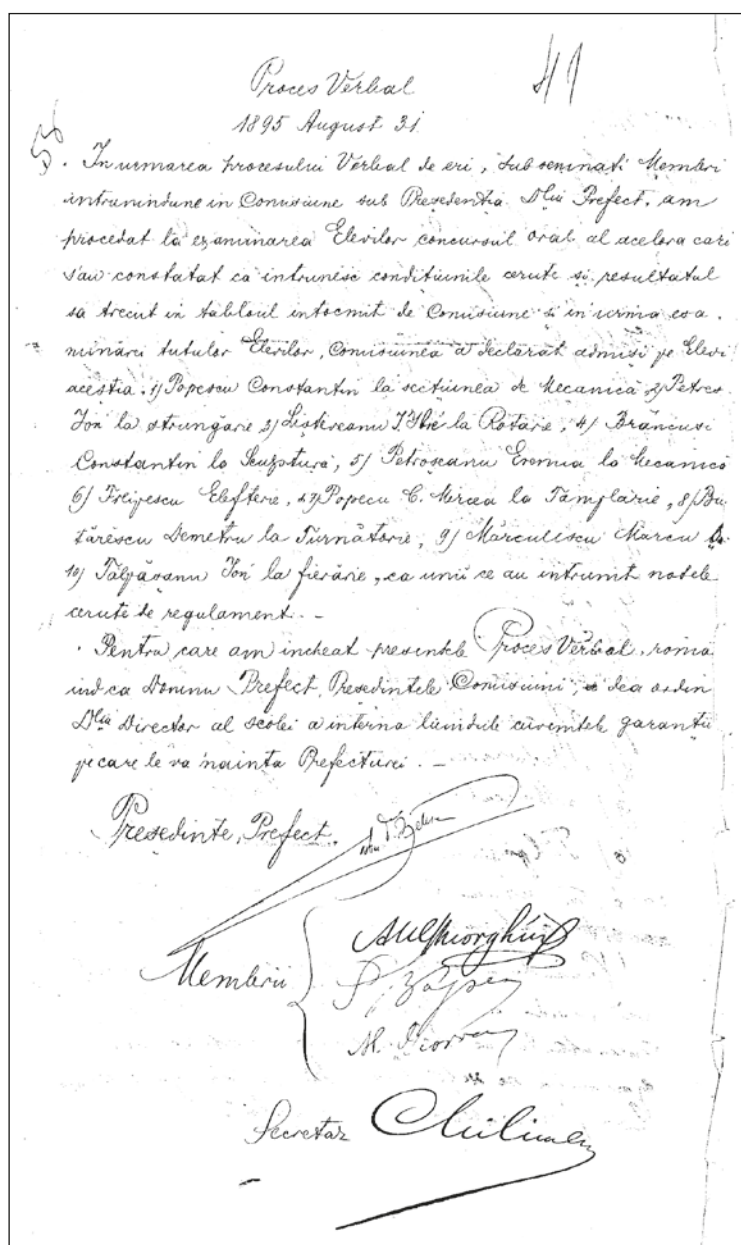 Proces Verbal
41
1895 August 31.
. In urmarea procesului Verbal de eri, subsemnati Membri
intrunindune in Comisiune sub Presedentia Dlui Prefect, am
procedat la ezaminarea Elevilor concursul oral al acelora cari
s'au constatat ca intrunesc conditiunile cerute si resultatul
sa trecut in tabloul intocmit de Comisiune si in urma esa.
minarei tutulor Elevilor, Comisiunea a declarat admisi pe Elevi
acestia. 1/ Popescu Constantin la sectiunea de Mecanică 2/ Petres
Ion la strungărie 3/ I. la Rotărie, 4/ Brâncusi
Constantin la Sculptură, 5/ Petroseanu Eremia la Mecanică
6/ Elefterie, 7/ Popecu C. Mircea la Tâmplărie, 8/ Bu
tărescu Demetru la Turnătorie, 9/ Mărculescu Marcu
10/ Tălpăsanu Ion la fierărie, ca unii ce au intrunit notele
cerute de regulament. -
. Pentru care am incheat presentele Proces Verbal, roma
ind ca Domnu Prefect, Presedintele Comisiuni, a dea ordin
Dlui Director al scolei a interna luindule cuvenitele garantii
pe care le va nainta Prefecturei. -
Presedinte, Prefect.
Membrii
Secretar